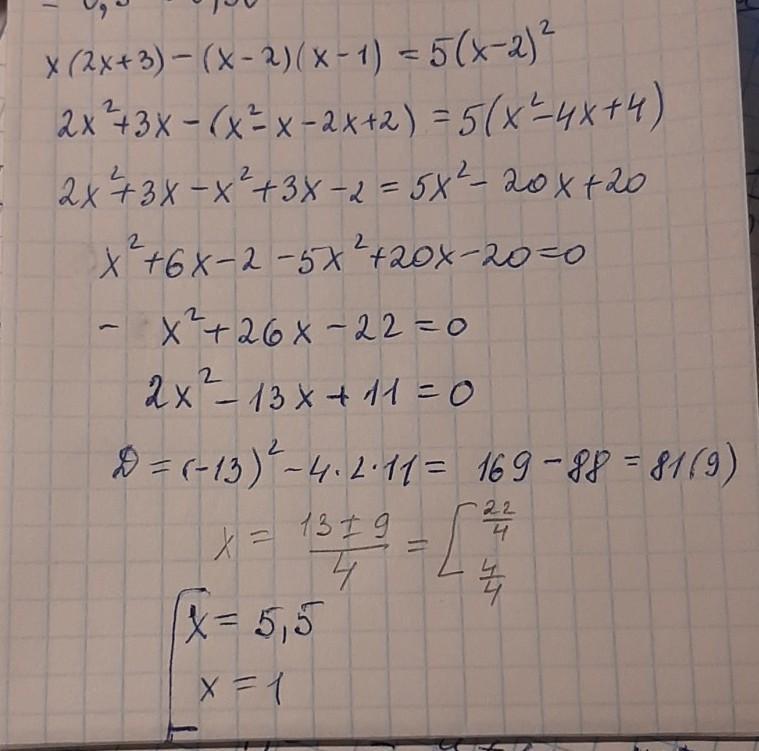 x(2x+3)-(x-2)(x-1)=5(x-2)²
2x²+3x-(x²-x-2x+2)=5(x²-4x+4)
2x²+3x-x²+3x-2=5x²-20x+20
x²+6x-2-5x²+20x-20=0
- x²+26x-22=0
2x²-13x+11=0
D=(-13)²-4·2·11= 169-88=81(9)
x = (13±9)/4 = [ 22/4
4/4
[ x=5,5
x=1